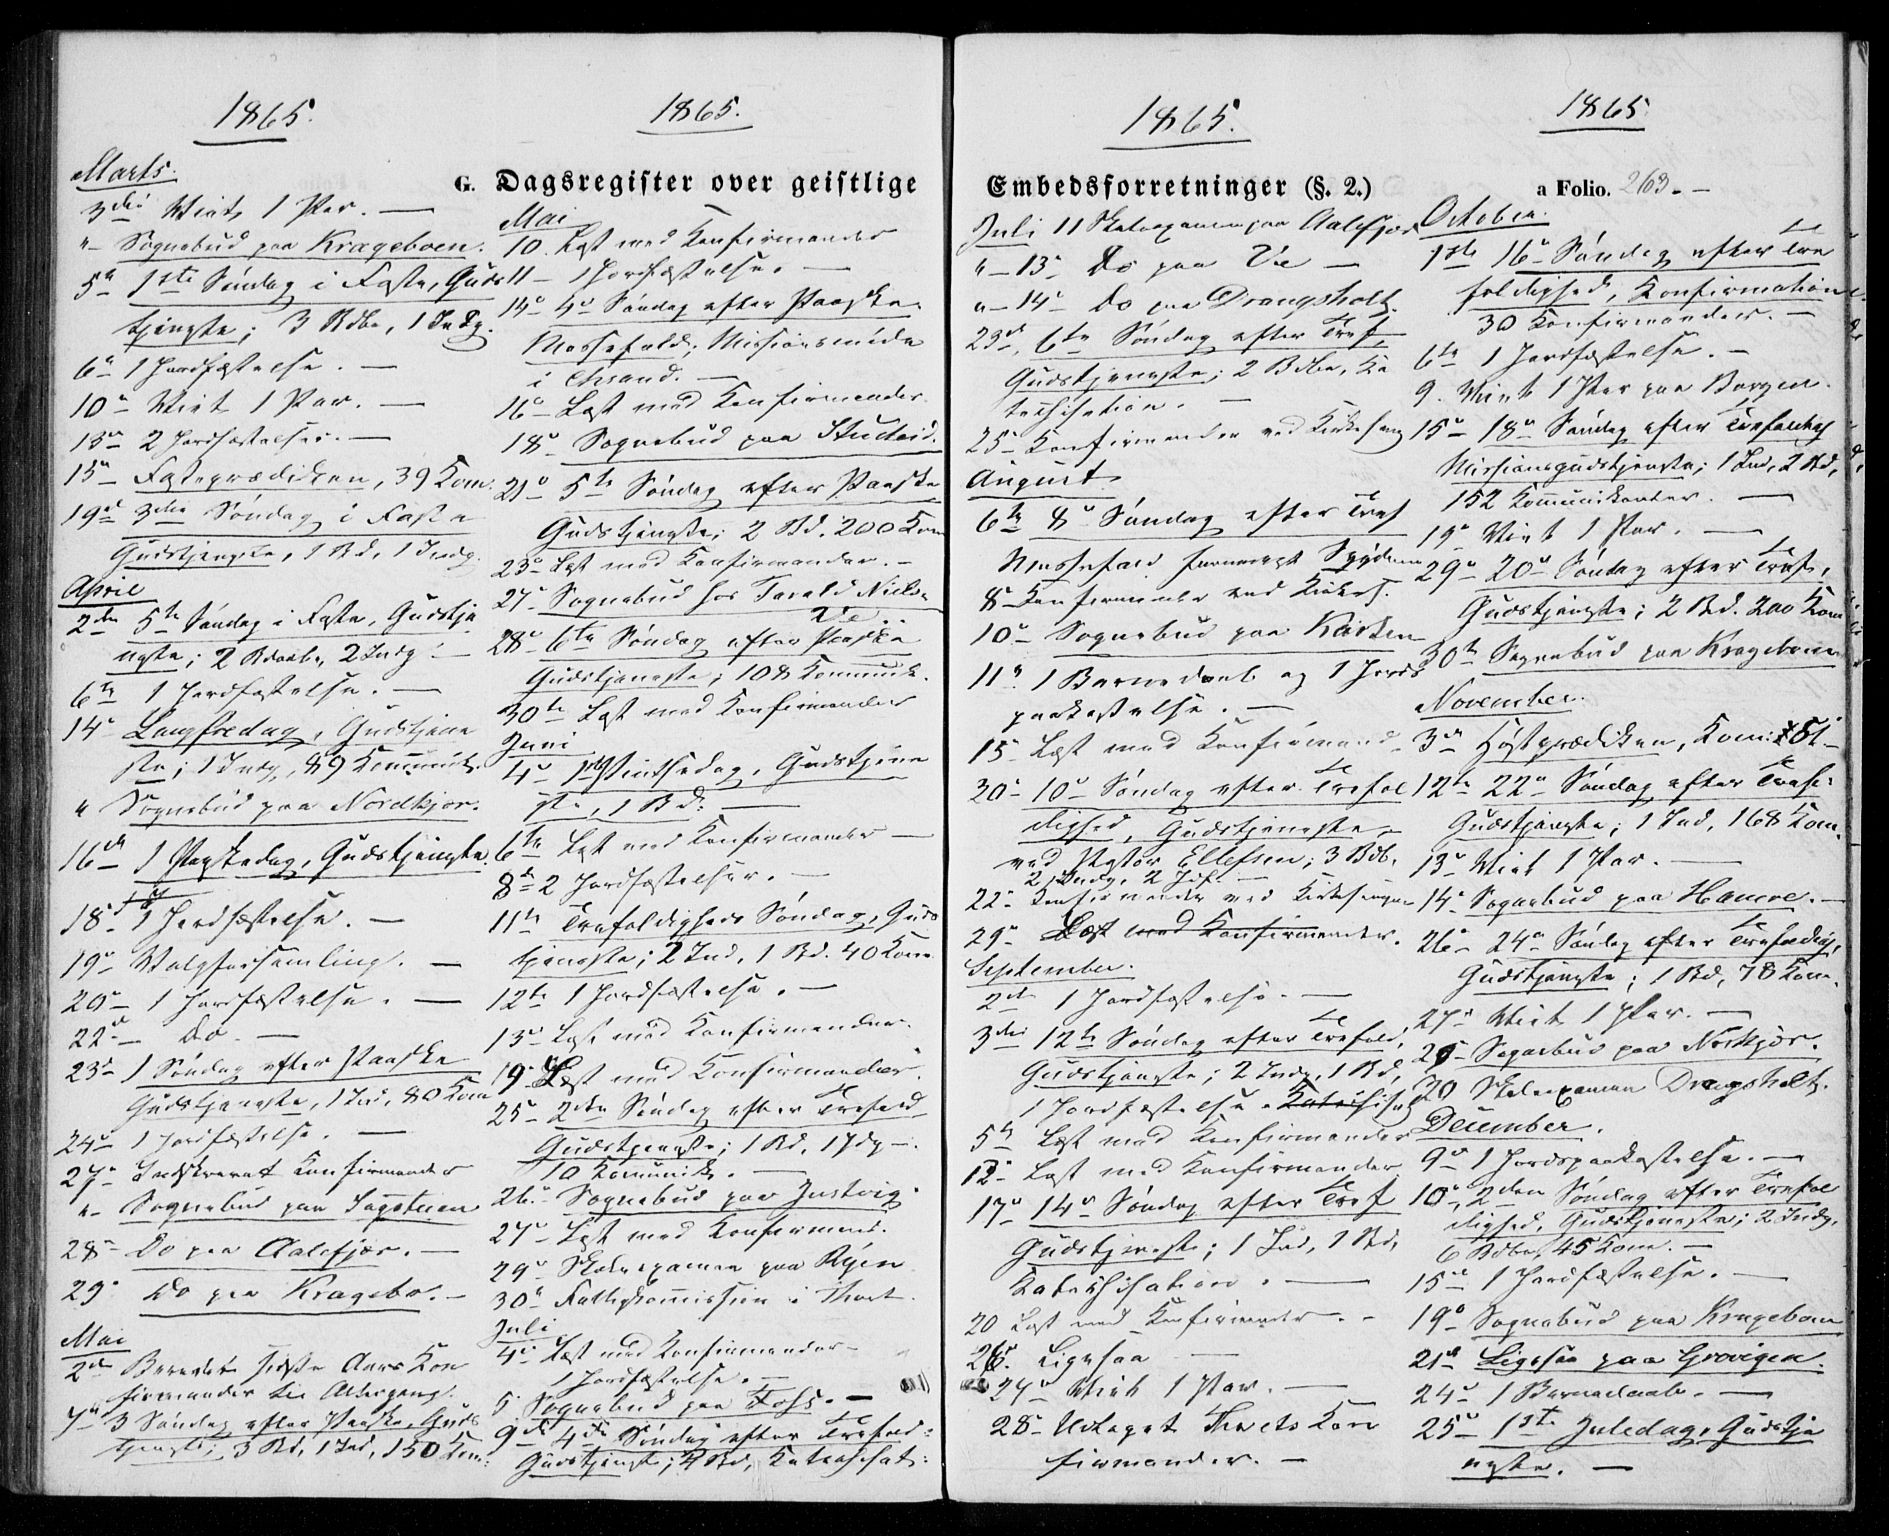 1865.
G. Dagsregister over geistlige
Marts.
3die Viet 1 Par. —
"- Sognebud paa Krageboen.
5te 1ste Søndag i Faste, Guds
tjeneste; 3 Bdb., 1 Indg.
6te 1 Jordfæstelse. —
10de Viet 1 Par. —
13de 2 Jordfæstelser. —
15de Fasteprædiken, 39 Kom.
19de 3die Søndag i Faste
Gudstjeneste, 1 Bd, 1 Indg.
April
2den 5te Søndag i Faste, Gudstje
neste; 2 2 Indg. —
6te 1 Jordfæstelse. —
14de Langfredag, Gudstjene
ste; 1 Indg, 89 Kommunik.
" Sognebud paa Nordkjær.
16de 1 Paaskedag, Gudstjeneste.
18de 1 Jordfæstelse. —
19de Valgforsamling. —
20de 1 Jordfæstelse. —
22de Do. —
23de 1 Søndag efter Paaske
Gudstjeneste, 1 Ind, 80 Kom
24de 1 Jordfæstelse. —
27de Indskrevet Konfirmander
"- Sognebud paa
28de Do paa Aalefjær. —
29. Do paa Kragebo. —
Mai
2den Aars Kon
firmander til Altergang.
7de 3 Søndag efter Paaske, Guds
tjeneste; 3 Bd, 1 Ind, 150 Kom.
1865.
Mai
10. Læst med Konfirmander
11 — 1 Jordfæstelse. —
14de 4de Søndag efter Paaske.
Messefald; Missionsmøde
i Chrsand. —
16de Læst med Konfirmander.
18de Sognebud paa Studeid.
21de 5te Søndag efter Paaske
Gudstjeneste; 2 Bd. 200 Kom
23de Læst med Konfirmander. —
27de Sognebud hos Tarald Nielsen
Ve.
28de 6te Søndag efter Paaske
Gudstjeneste; 108 Kommunik.
30te Læst med Konfirmander
Juni
4de 1 Pintsedag, Gudstjene
ste, 1 Bd. —
6te Læst med Konfirmander —
8de 2 Jordfæstelser. —
11te Trefoldigheds Søndag, Guds
tjeneste; 2 Ind, 1 Bd. 40 Kom
12te 1 Jordfæstelse. —
13de Læst med Konfirmander.
19de Læst med Konfirmander.
25de 2den Søndag efter Trefold
Gudstjeneste; 1 Bd, 1 Idg —
10 Kommunik. —
26de Sognebud paa Justvig.
27de Læst med Konfirmand.
29de Skoleexamen paa Ryen
30te Fattigkommission i Thvet.
Juli
4de Læst med Konfirmander —
1 Jordfæstelse. —
5 Sognebud paa Foss. —
9de 4de Søndag efter Trefold:
Gudstjeneste; 4 Bd, Katechisat:
1865.
Embedsforretninger (§. 2.)
Juli 11 Skoleexamen paa Aalefjær
"- 13de Do paa Ve —
"- 14de Do paa Drangsholt.
23de, 6te Søndag efter Tref,
Gudstjeneste; 2 Bdb, Ka
techisation. —
25de Konfirmander ved Kirkesang
August
6te 8de Søndag efter Tref
Messefald
8de Konfirmander ved Kirkes.
10de Sognebud paa Karsten
11te 1 Barnedaab og 1 Jords
paakastelse. —
15 Læst med Konfirmand.
20de 10de Søndag efter Trefol
dighed, Gudstjeneste,
ved Pastor Ellefsen; 3 Bdb.
2 Indg. 2 Jdf. —
22de Konfirmander ved Kirkesanger
29de Læst med Konfirmander.
September.
2den 1 Jordfæstelse. —
3die 12te Søndag efter Trefold,
Gudstjeneste; 2 Indg, 1 Bd,
1 Jordfæstelse. Katechisat
5te Læst med Konfirmander
12te Læst med Konfirmander
17de 14de Søndag efter Tref
Gudstjeneste; 1 Ind, 1 Bd,
Katechisation. —
20 Læst med Konfirmander. —
26. Ligesaa —
27de Viet 1 Par. —
28de Udtaget Thvets Kon
firmander. —
1865
a Folio. 263. —
October.
1ste 16de Søndag efter Tre
foldighed, Konfirmation
30 Konfirmander. —
6te 1 Jordfæstelse. —
9. Viet 1 Par paa Bergen.
15de 18de Søndag efter Trefoldigh
Missionsgudstjeneste; 1 Ind, 2 Bd,
152 Kommunikanter. —
19de Viet 1 Par. —
29de 20de Søndag efter Tref.,
Gudstjeneste; 2 Bd. 200 Kom
30te Sognebud paa Krageboen
November.
3die Høstprædiken, Kom:
12te 22de Søndag efter Tref:
Gudstjeneste; 1 Ind, 168 Kom.
13de Viet 1 Par. —
14de Sognebud paa Hamre. —
26de 24de Søndag efter Trefoldigh,
Gudstjeneste; 1 Bd, 78 Kom.
27de Viet 1 Par. —
Sognebud paa Norkjær.
30 Skoleexamen Drangsholt.
December.
9de 1 Jordspaakastelse. —
10de, 2den Søndag efter Trefol
dighed, Gudstjeneste; 2 Indg,
6 Bdb, 45 Kom. —
15de 1 Jordfæstelse. —
19de Sognebud paa Krageboen
21de Ligesaa paa Grovigen.
24de 1 Barnedaab. —
25de 1ste Juledag, Gudstje
neste. —